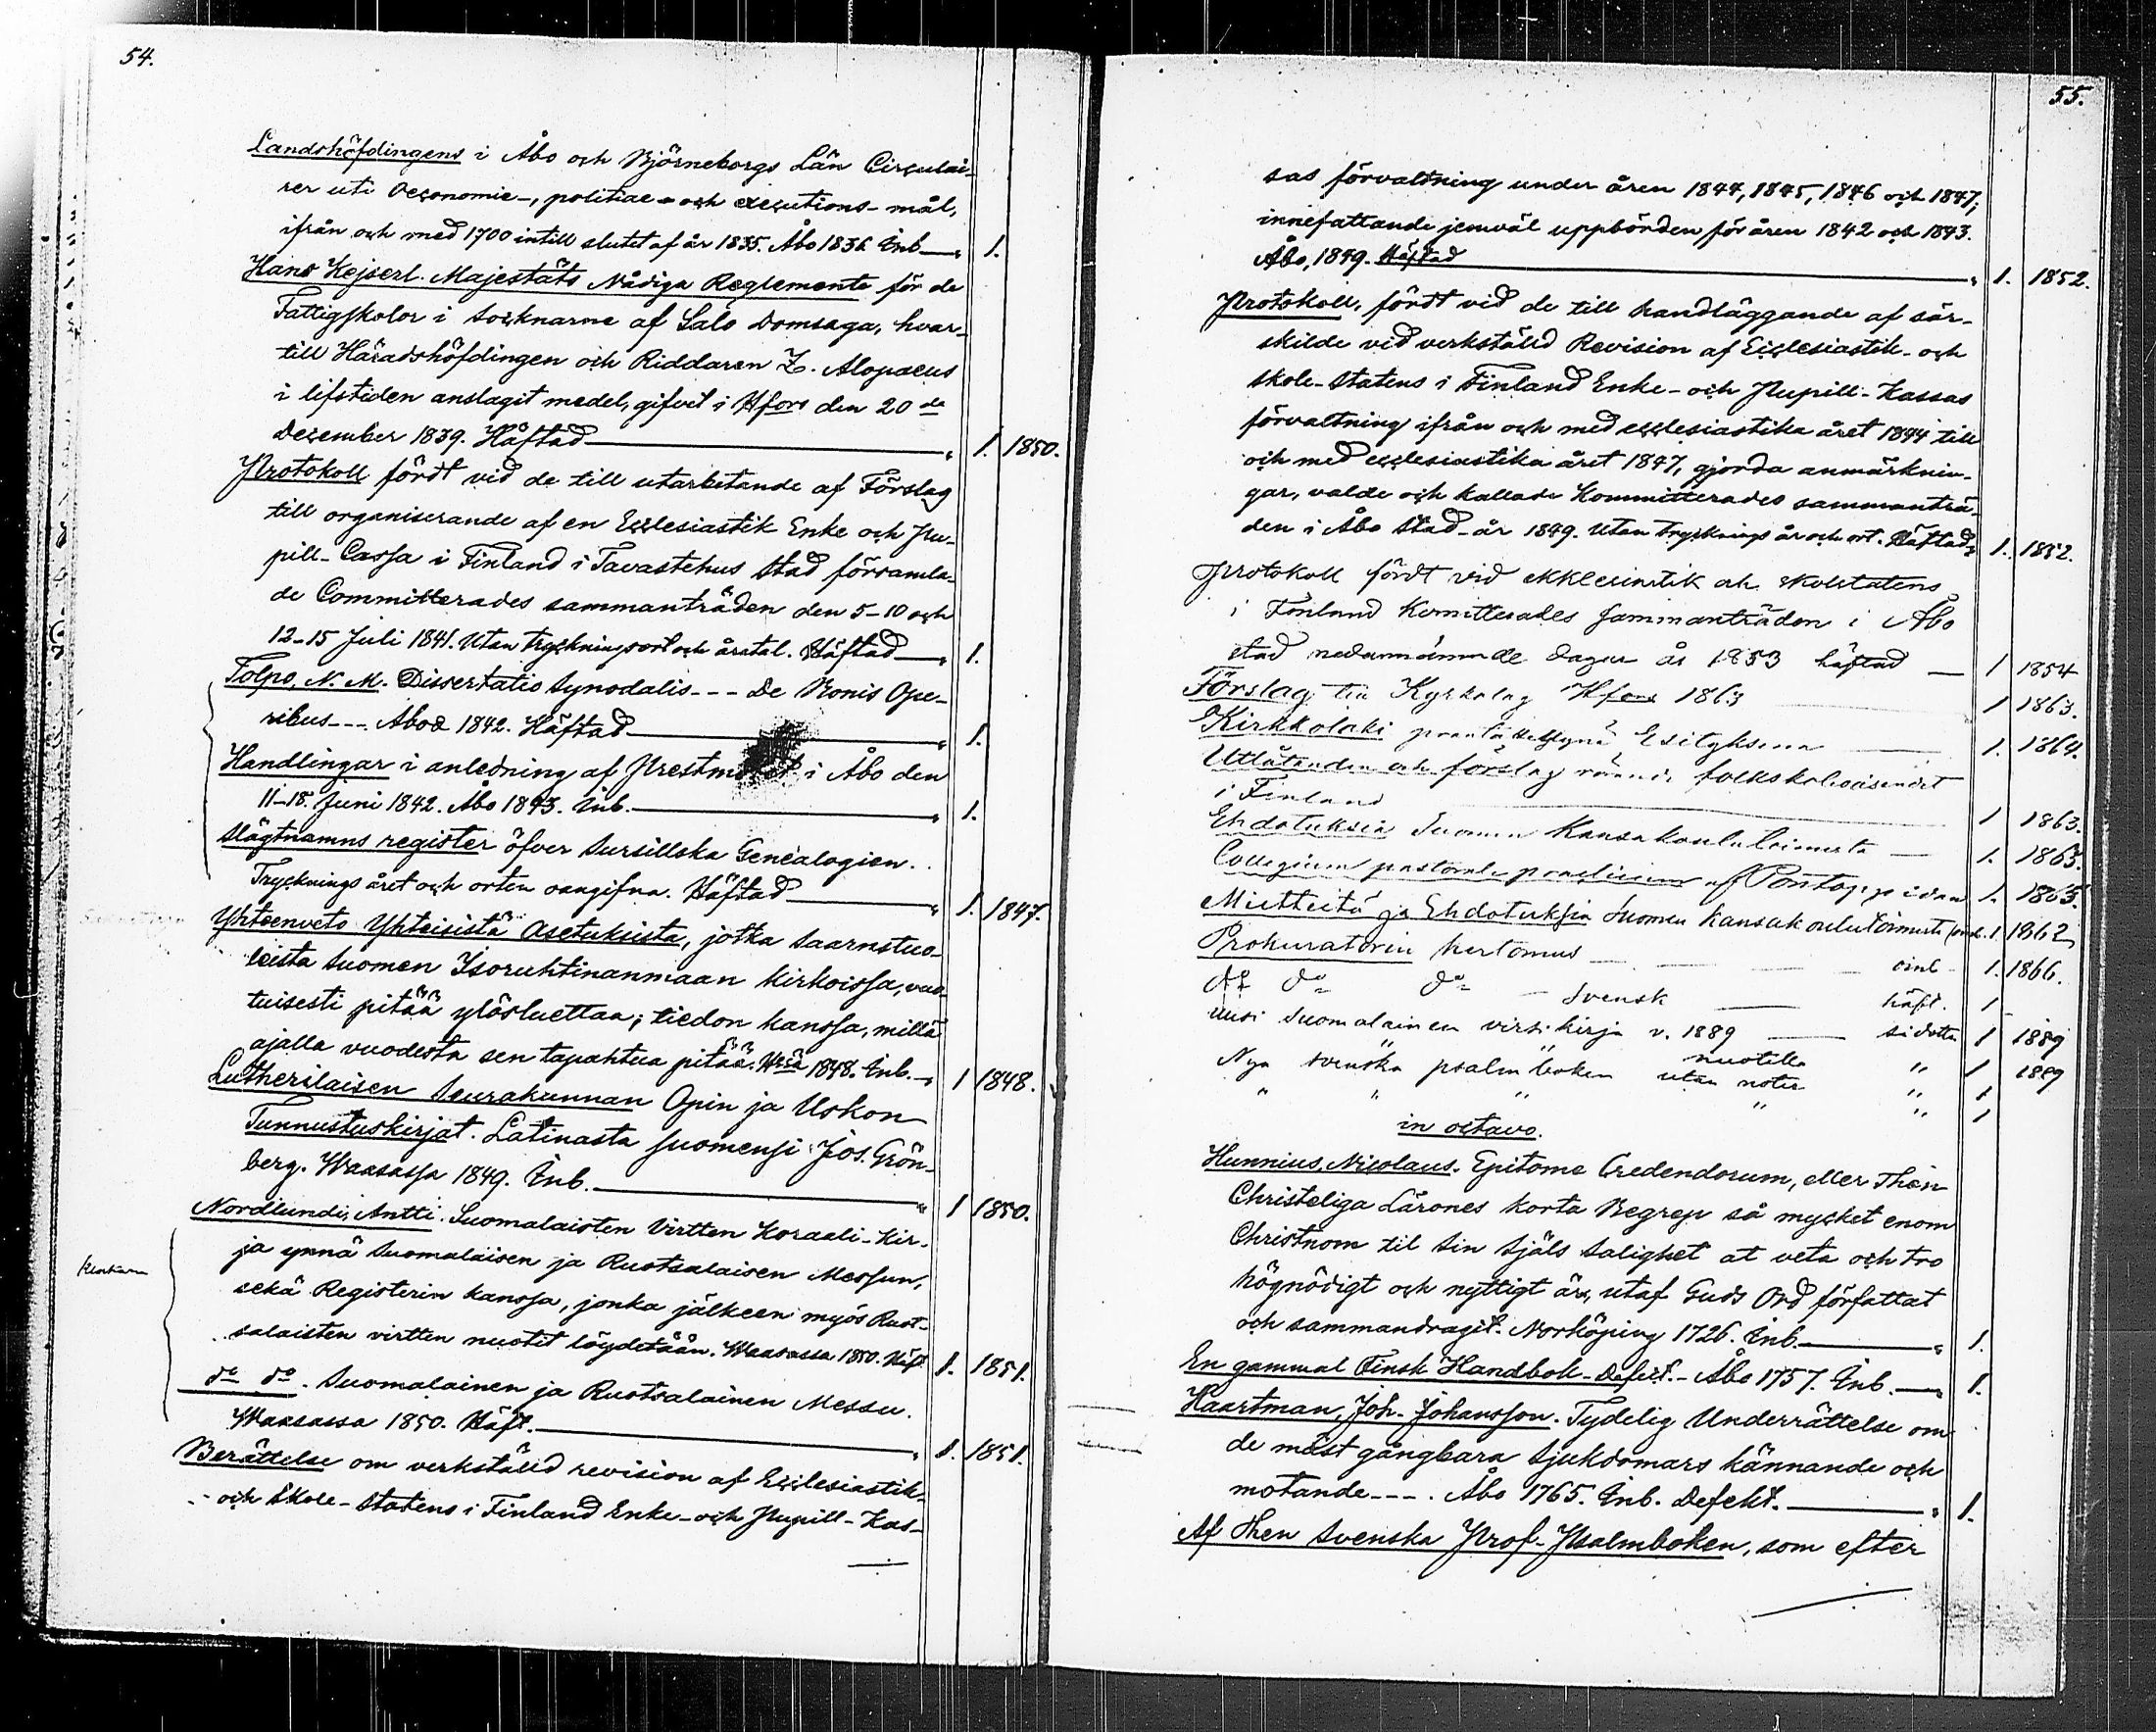 54.
Landshöfdingens i Åbo och Björneborgs Län Circulai-
rer uti Oeconomie-, politiae- och executions-mål,
ifrån och med 1700 intill slutet af år 1835. Åbo 1836 Inb. — " 1.
Hans Kejserl. Majestäts Nådiga Reglemente för de
Fattigskolor i Socknarne af Salo Domsaga, hvar-
till Häradshöfdingen och Riddaren Z. Alopaeus
i lifstiden anslagit medel, gifvet i Hfors den 20 de
December 1839. Häftad — " 1. 1850.
Protokoll fördt vid de till utarbetande af Förslag
till organiserande af en Ecclesiastik Enke och Pu-
pill-Cassa i Finland i Tavastehus Stad församla-
de Committerades sammanträden den 5-10 och
12-15 Juli 1841. Utan tryckningsort och årstal. Häftad — " 1.
Tolpo, N. M. Dissertatio Synodalis--- De Bonis Ope-
ribus---. Aboae 1842. Häftad — " 1.
Handlingar i anledning af Prestmötet i Åbo den
11-18. Juni 1842. Åbo 1843. Inb. — " 1.
Slägtnamns register öfver Sursillska Genealogien..
Trycknings året och orten oangifna. Häftad — " 1. 1847.
Yhteenveto Yhteisistä Asetuksista, jotka Saarnstuo-
leista Suomen Isoruhtinanmaan Kirkoissa, vuo-
tuisesti pitää ylösluettaa; tiedon kanssa, millä
ajalla vuodesta sen tapahtua pitää. 1848. Inb. — " 1 1848.
Lutherilaisen Seurakunnan Opin ja Uskon
Tunnustuskirjat. Latinasta suomensi Jos. Grön-
berg. Waasassa 1849. Inb. — " 1 1850.
Nordlundi, Antti. Suomalaisten Virtten Koraali-Kir-
ja ynnä Suomalaisen ja Ruotsalaisen Messun,
sekä Registerin kanssa, jonka jälkeen myös Ruot-
salaisten virtten nuotit löydetään. Waasassa 1850. Häft 1. 1851.
do do. Suomalainen ja Ruotsalainen Messu.
Waasassa 1850. Häft. — " 1. 1851.
Berättelse om verkstäld revision af Ecclesiastik-
och Skole-Statens i Finland Enke- och Pupill-Kas-
55.
sas förvaltning under åren 1844, 1845, 1846 och 1847;
innefattande jemväl uppbörden för åren 1842 och 1843.
Åbo, 1849. Häftad — " 1. 1852.
Protokoll, fördt vid de till handläggande af sär-
skilde vid verkstäld Revision af Ecclesiastik- och
Skole-Statens i Finland Enke- och Pupill-Kassas
förvaltning ifrån och med ecclesiastika året 1844 till
och med ecclesiastika året 1847, gjorda anmärknin-
gar, valde och kallade Kommitterades sammanträ-
den i Åbo Stad år 1849. Utan trycknings år och ort. Häftad " 1. 1852.
Protokoll fördt vid ekklesiastik och skolstatens
i Finland Komitterades sammanträden i Åbo
stad nedannämnde dagar år 1853 häftad — 1 1854
Förslag till Kyrkolag Hfors 1863 1 1863.
Kirkkolaki Esityksenä — 1. 1864.
Utlåtanden och förslag rörande folkskoleväsendet
i Finland 1 1863.
Ehdotuksia Suomen Kansakoululaitoksesta — 1. 1863.
Collegium pastorale practicum af Pontoppidan 1. 1865.
Mietteitä ja Ehdotuksia Suomen kansakoulutoimesta 1 1862
Prokuratorin kertomus — oinb - 1. 1866.
do do do — Svensk — häft. 1
Uusi Suomalainen virsikirja v. 1889 — sidottu 1 1889
Nya svenska psalmboken nuotilla " 1 1889
" " " utan noter " 1
" " 1
in octavo.
Hunnius, Nicolaus. Epitome Credendorum, eller Then
Christeliga Lärones korta Begrep så mycket enom
Christnom til sin Själs Salighet at veta och tro
högnödigt och nyttigt är, utaf Guds Ord författat
och sammandragit. Norköping 1726. Inb. — " 1.
En gammal Finsk Handbok - Defect. - Åbo 1757. Inb. — " 1.
Haartman, Joh. Johansson. Tydelig Underrättelse om
de mäst gångbara Sjukdomars kännande och
motande---. Åbo 1765. Inb. Defekt. — " 1.
Af Then Svenska Prof-Psalmboken, som efter